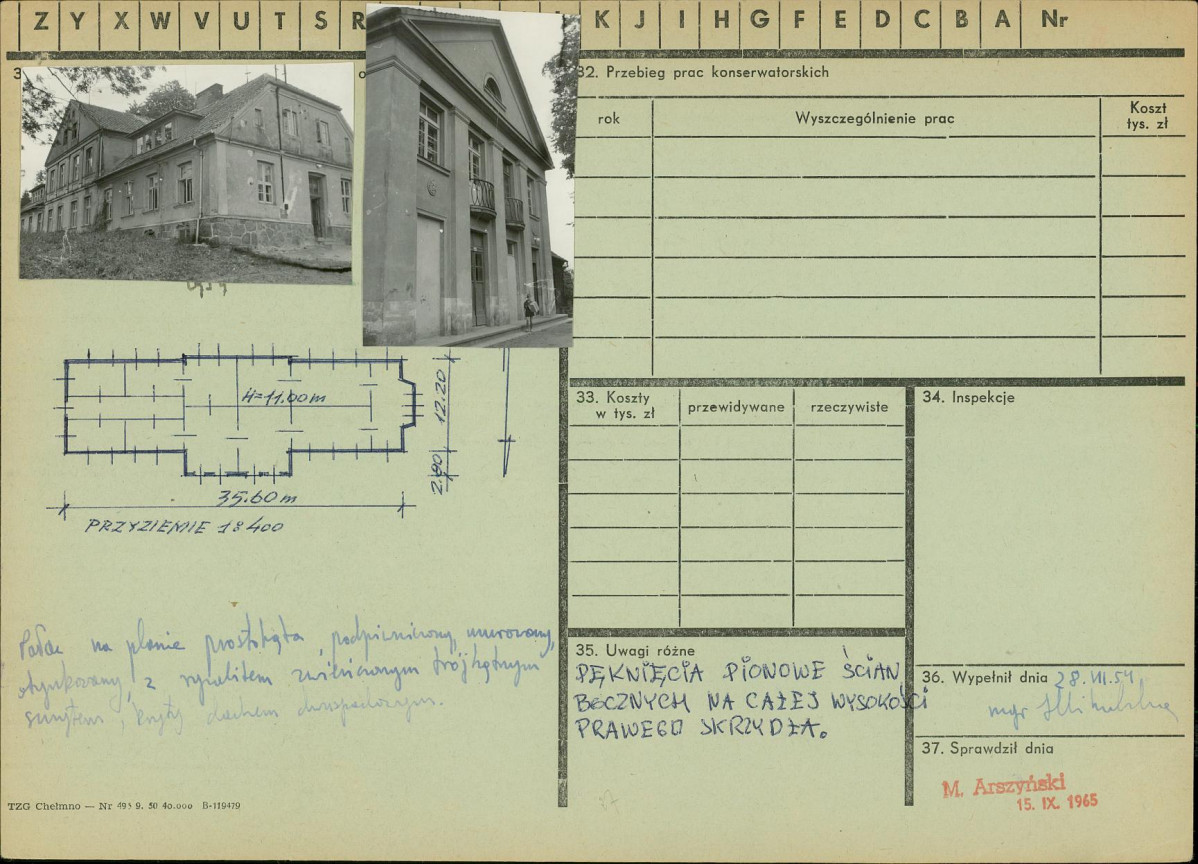 Z Y X W V U T S R K J I H G F E D C B A Nr
32. Przebieg prac konserwatorskich
rok Wyszczególnienie prac Koszt tys. zł
H=11.00m
12.20
2.80
35.60 m
PRZYZIEMIE 1:400
33. Koszty w tys. zł przewidywane rzeczywiste
34. Inspekcje
Pałac na planie prostokąta, podpiwniczony, murowany,
otynkowany, z ryzalitem zwieńczonym trójkątnym
szczytem, kryty dachem dwuspadowym.
35. Uwagi różne
PĘKNIĘCIA PIONOWE ŚCIAN
BOCZNYCH NA CAŁEJ WYSOKOŚCI
PRAWEGO SKRZYDŁA.
36. Wypełnił dnia 28.VII.59
mgr
37. Sprawdził dnia
M. Arszyński
15. IX. 1965
TZG Chełmno — Nr 493 9. 50 40.000 B-119479